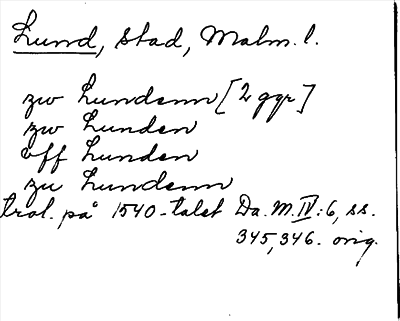 Lund, stad, Malm. l.
zw Lundenn [2 ggr]
zw Lunden
off Lunden
zu Lundenn
trol. på 1540-talet Da. M. IV: 6, ss.
345, 346. orig.